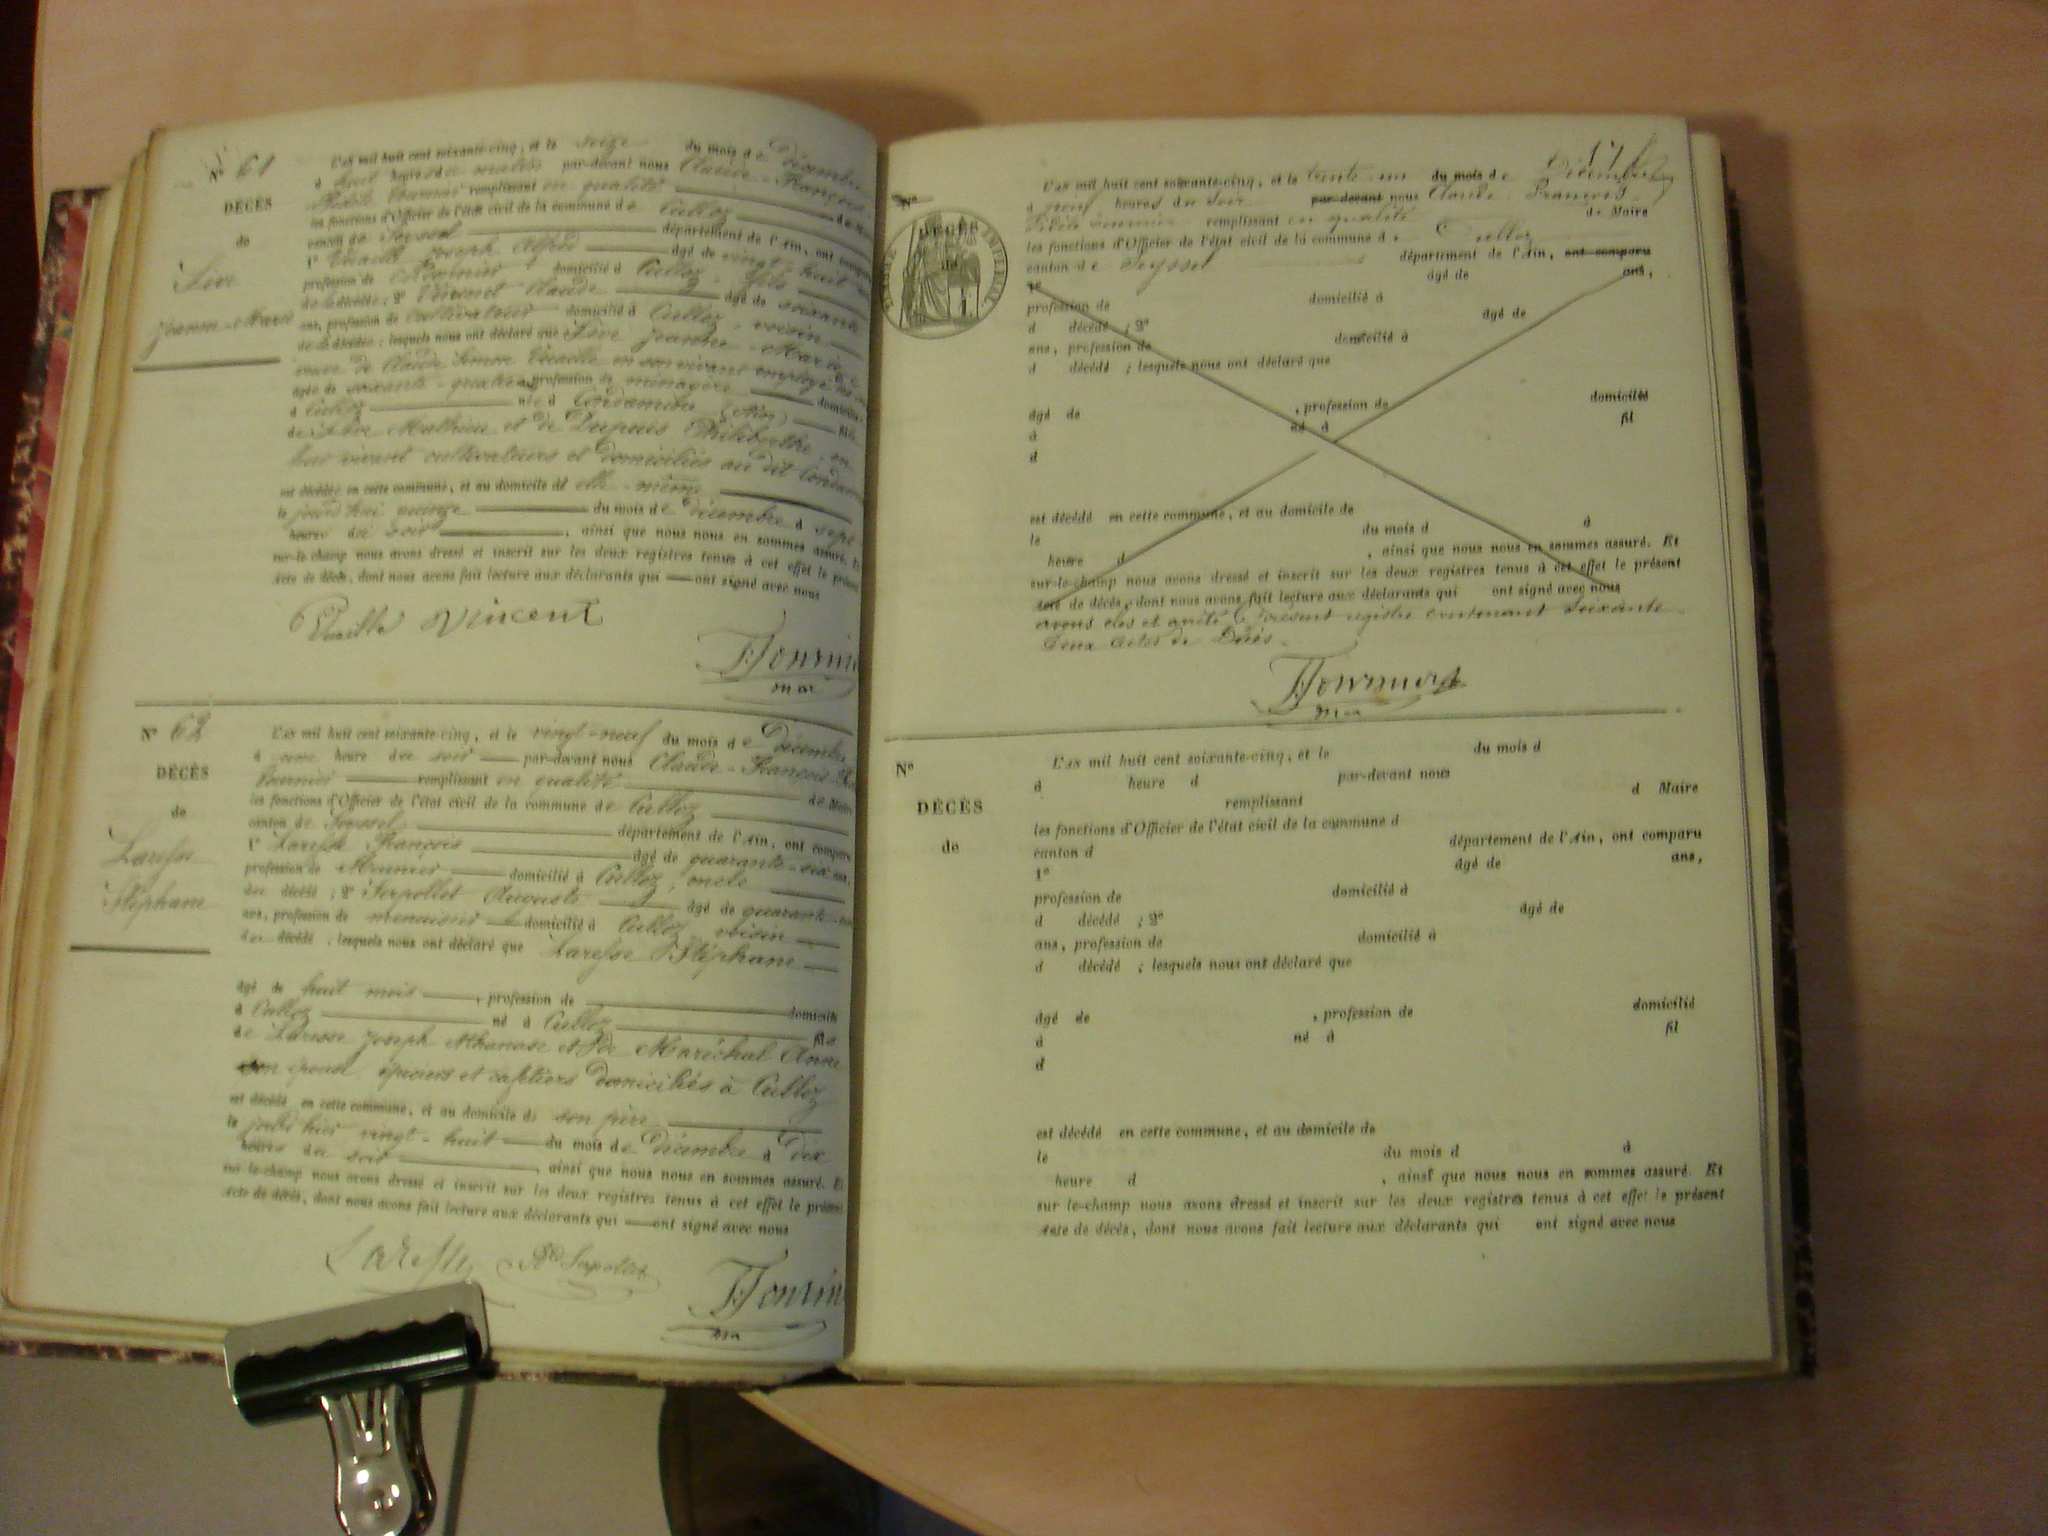 N° 61
DÉCÈS
de
Jeanne-Marie
L'an mil huit cent soixante-cinq, et le seize du mois de Décembre
à huit heures du matin par-devant nous Claude-François
remplissant en qualité
les fonctions d'Officier de l'état civil de la commune de Culloz de
canton de Seyssel département de l'Ain, ont comparu
1° Joseph âgé de vingt-huit
profession de domicilié à Culloz fils
de la décédée ; 2° Vincent Claude âgé de soixante
ans, profession de cultivateur domicilié à Culloz, voisin
de la décédée ; lesquels nous ont déclaré que Jeanne-Marie
veuve de Claude en son vivant employé
âgée de soixante-quatre profession de ménagère domiciliée
à Culloz née à (Ain) fille
de Mathieu et de Dupuis Philiberthe, en
leur vivant cultivateurs et domiciliés au dit
est décédée en cette commune, et au domicile d'elle-même
le jourd'hui quinze du mois de Décembre à sept
heures du soir, ainsi que nous nous en sommes assuré. Et
sur-le-champ nous avons dressé et inscrit sur les deux registres tenus à cet effet le présent
Acte de décès, dont nous avons fait lecture aux déclarants qui ont signé avec nous
Vincent
N° 62
DÉCÈS
de
Laresse
Stéphane
L'an mil huit cent soixante-cinq, et le vingt-neuf du mois de Décembre
à une heure du soir par-devant nous Claude-François
Fournier remplissant en qualité de Maire
les fonctions d'Officier de l'état civil de la commune de Culloz
canton de Seyssel département de l'Ain, ont comparu
1° Laresse François âgé de quarante-six ans,
profession de Meunier domicilié à Culloz, oncle
du décédé ; 2° Serpollet Auguste âgé de quarante
ans, profession de menuisier domicilié à Culloz voisin
du décédé ; lesquels nous ont déclaré que Laresse Stéphane
âgé de huit mois, profession de domicilié
à Culloz né à Culloz fils
de Laresse Joseph Athanase et de Maréchal Anne
son épouse épiciers et domiciliés à Culloz
est décédé en cette commune, et au domicile de son père
le jour d'hier vingt-huit du mois de Décembre à Dix
heures du soir, ainsi que nous nous en sommes assuré. Et
sur-le-champ nous avons dressé et inscrit sur les deux registres tenus à cet effet le présent
Acte de décès, dont nous avons fait lecture aux déclarants qui ont signé avec nous
Laresse
N°
DÉCÈS
L'an mil huit cent soixante-cinq, et le trente-un du mois de Décembre
à neuf heures du soir par devant nous Claude François
Fournier remplissant en qualité de Maire
les fonctions d'Officier de l'état civil de la commune d Culloz
canton de Seyssel département de l'Ain, ont comparu
1° âgé de ans,
profession de domicilié à
d décédé ; 2° âgé de
ans, profession de domicilié à
d décédé ; lesquels nous ont déclaré que
âgé de , profession de domicilié
à né à fil
d
est décédé en cette commune, et au domicile de
le du mois d à
heure d , ainsi que nous nous en sommes assuré. Et
sur-le-champ nous avons dressé et inscrit sur les deux registres tenus à cet effet le présent
acte de décès, dont nous avons fait lecture aux déclarants qui ont signé avec nous
avons clos et arrêté le présent registre contenant soixante
deux actes de Décès.
Fournier
N°
DÉCÈS
de
L'an mil huit cent soixante-cinq, et le du mois d
à heure d par-devant nous
remplissant d Maire
les fonctions d'Officier de l'état civil de la commune d
canton d département de l'Ain, ont comparu
1° âgé de ans,
profession de domicilié à
d décédé ; 2° âgé de
ans, profession de domicilié à
d décédé ; lesquels nous ont déclaré que
âgé de , profession de domicilié
à né à fil
d
est décédé en cette commune, et au domicile de
le du mois d à
heure d , ainsi que nous nous en sommes assuré. Et
sur-le-champ nous avons dressé et inscrit sur les deux registres tenus à cet effet le présent
Acte de décès, dont nous avons fait lecture aux déclarants qui ont signé avec nous